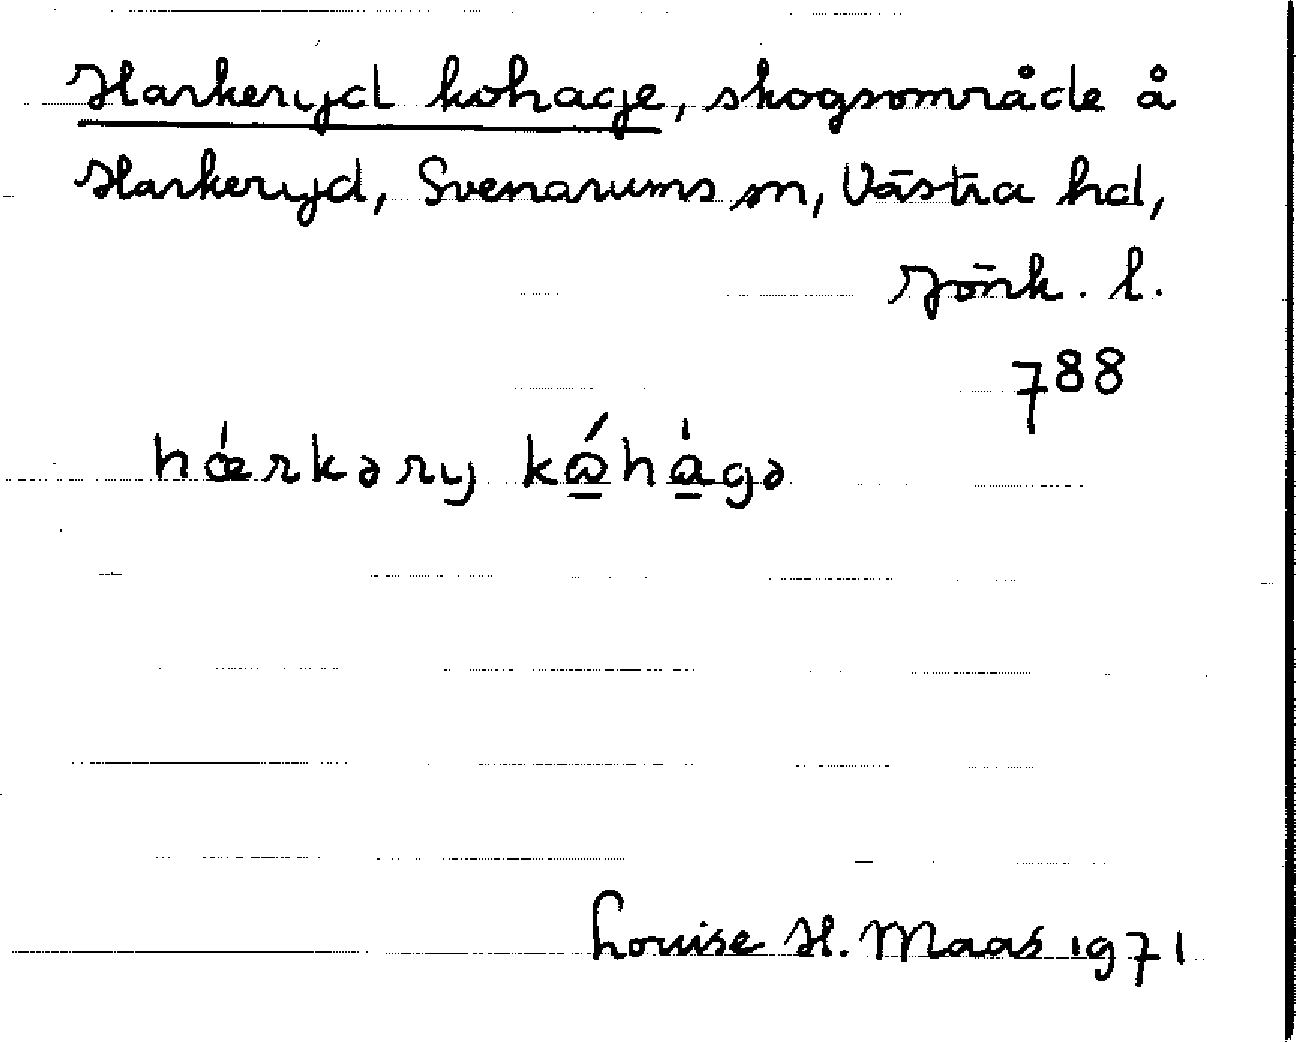 Harkeryd kohage, skogsområde å
Harkeryd, Svenarums sn, Västra hd,
Jönk. l.
788
hǽrkəry kǿhágə
Louise H. Maas 1971